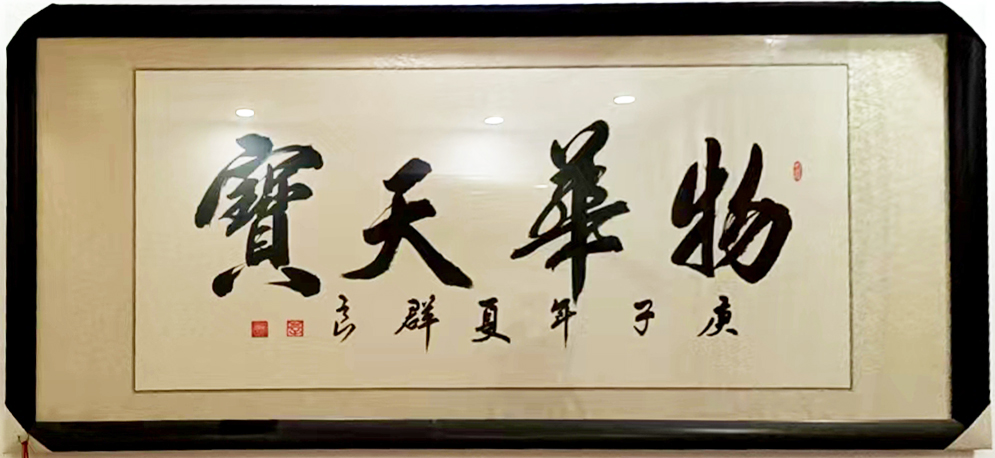 物華天寶
庚子年夏群